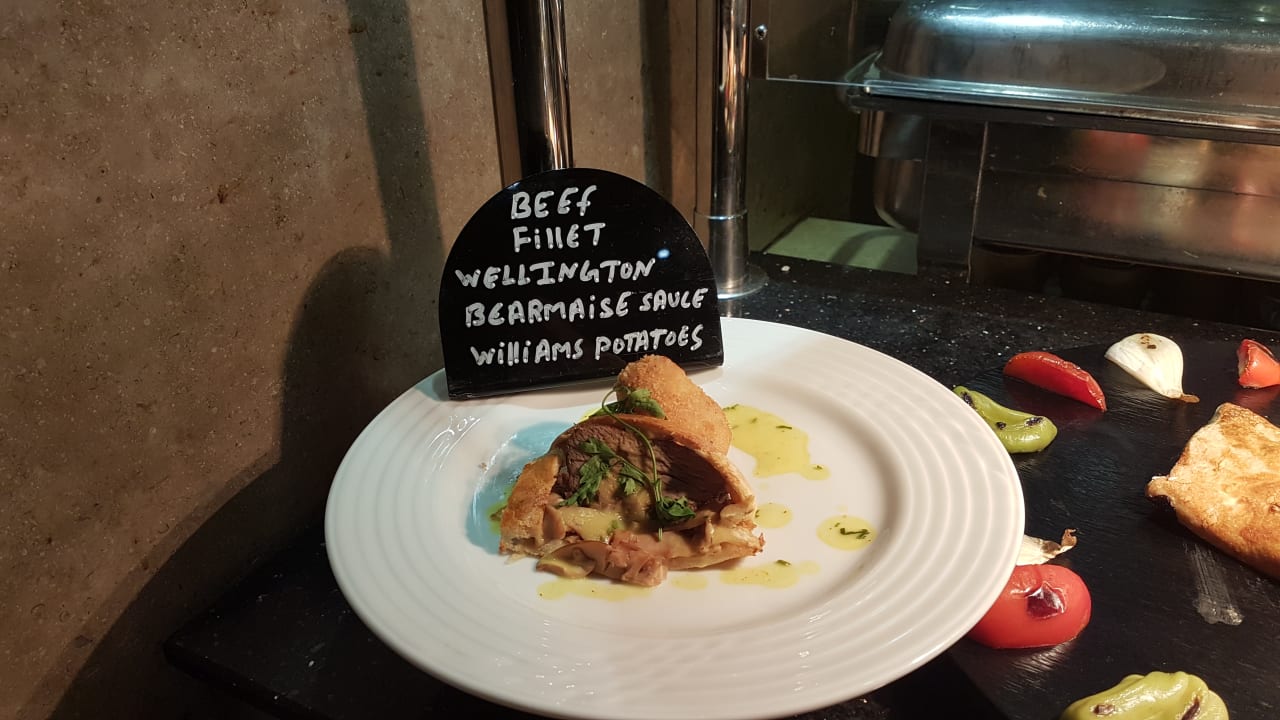 BEEF
FillET
WELLINGTON
BEARMAISE SAUCE
WilliAMS POTATOES